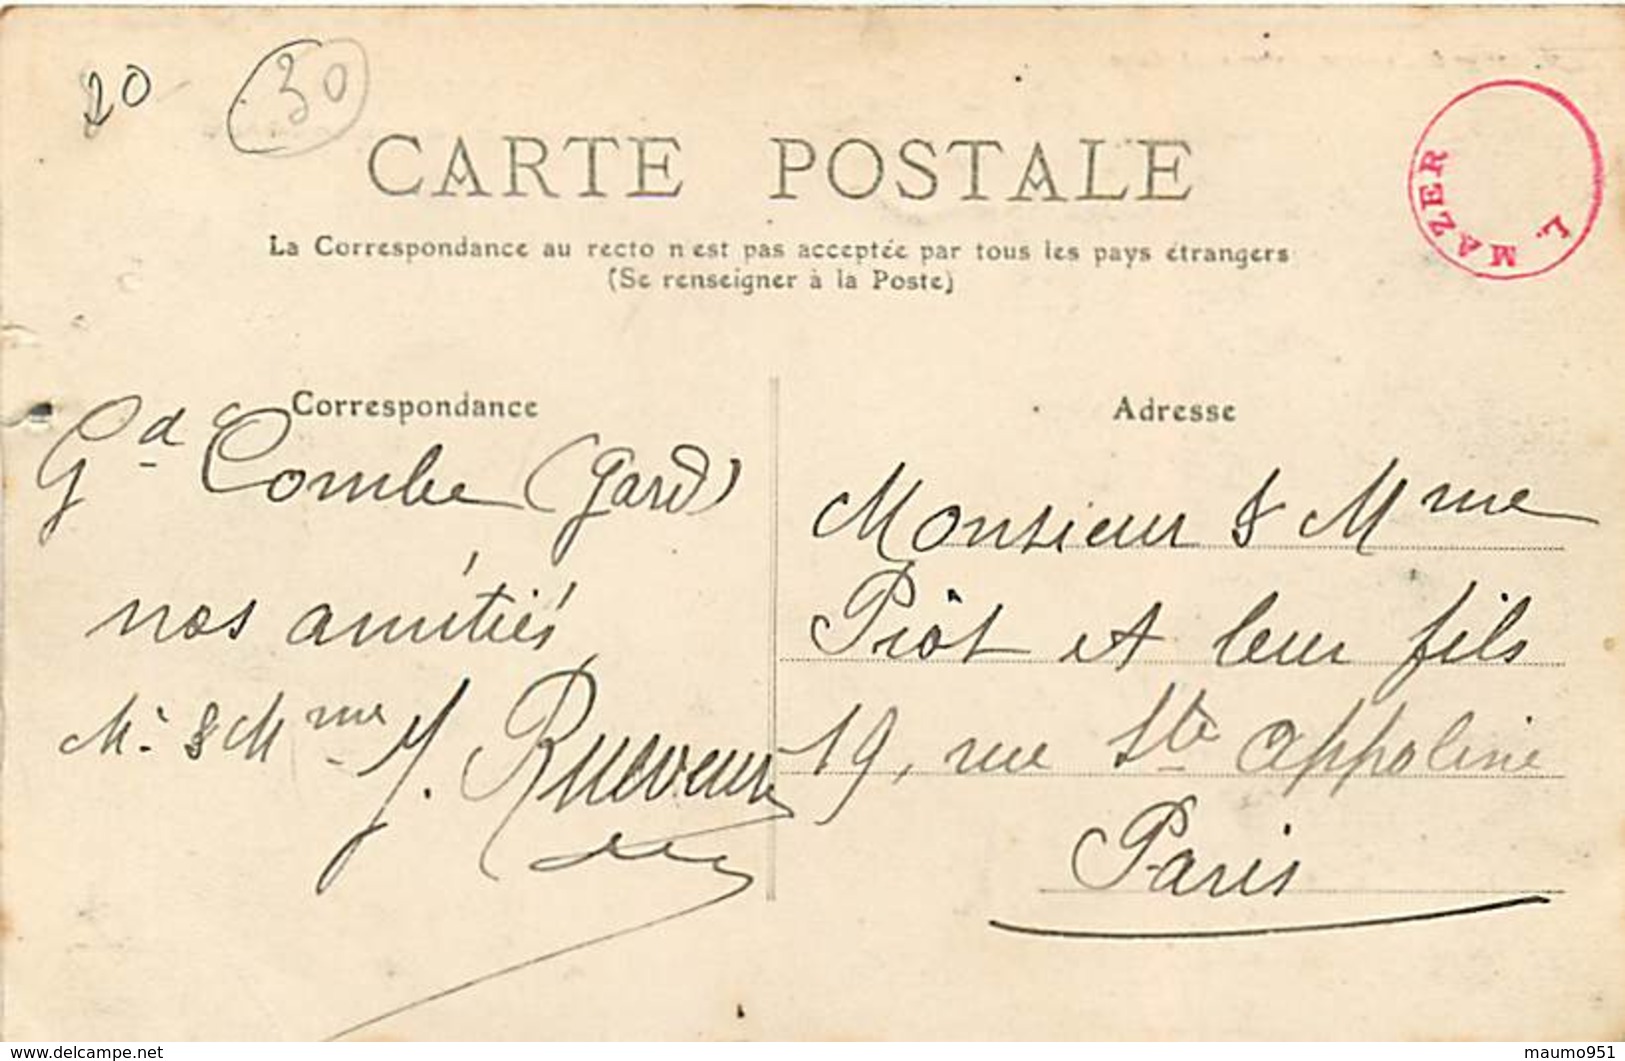 20
30
CARTE POSTALE
La Correspondance au recto n'est pas acceptée par tous les pays étrangers
(Se renseigner à la Poste)
L. MAZER
Correspondance
Gd Combe (Gard)
nos amitiés
Mr & Mme J.
Adresse
Monsieur & Mme
Piôt et leur fils
19, rue Ste Appoline
Paris
maumo951